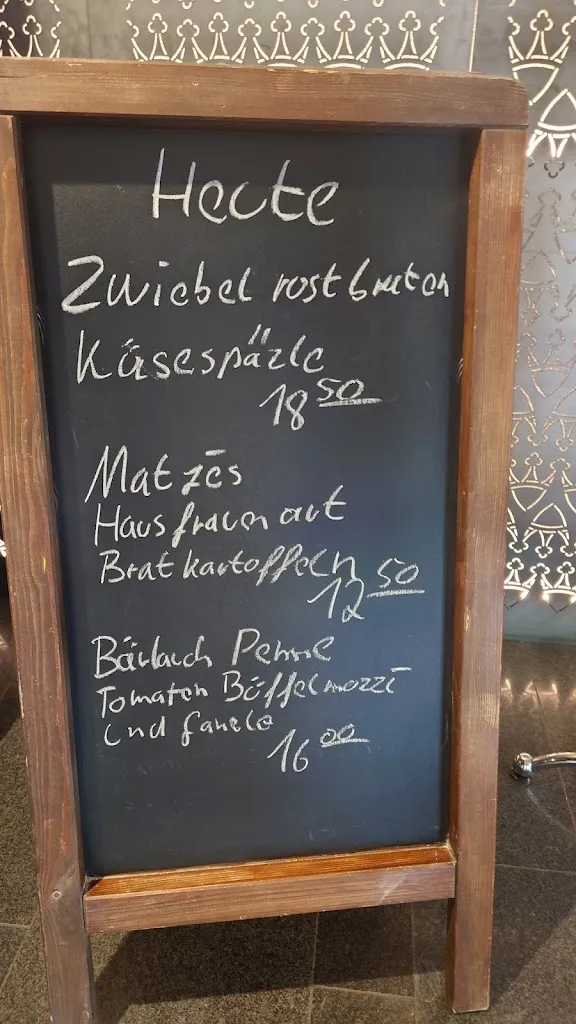 Heute
Zwiebel rostbraten
Käsespäzle
18 50
Matjes
Hausfrauen art
Bratkartoffeln
12 50
Bärlauch Penne
Tomaten Büffelmozz
und
16 00